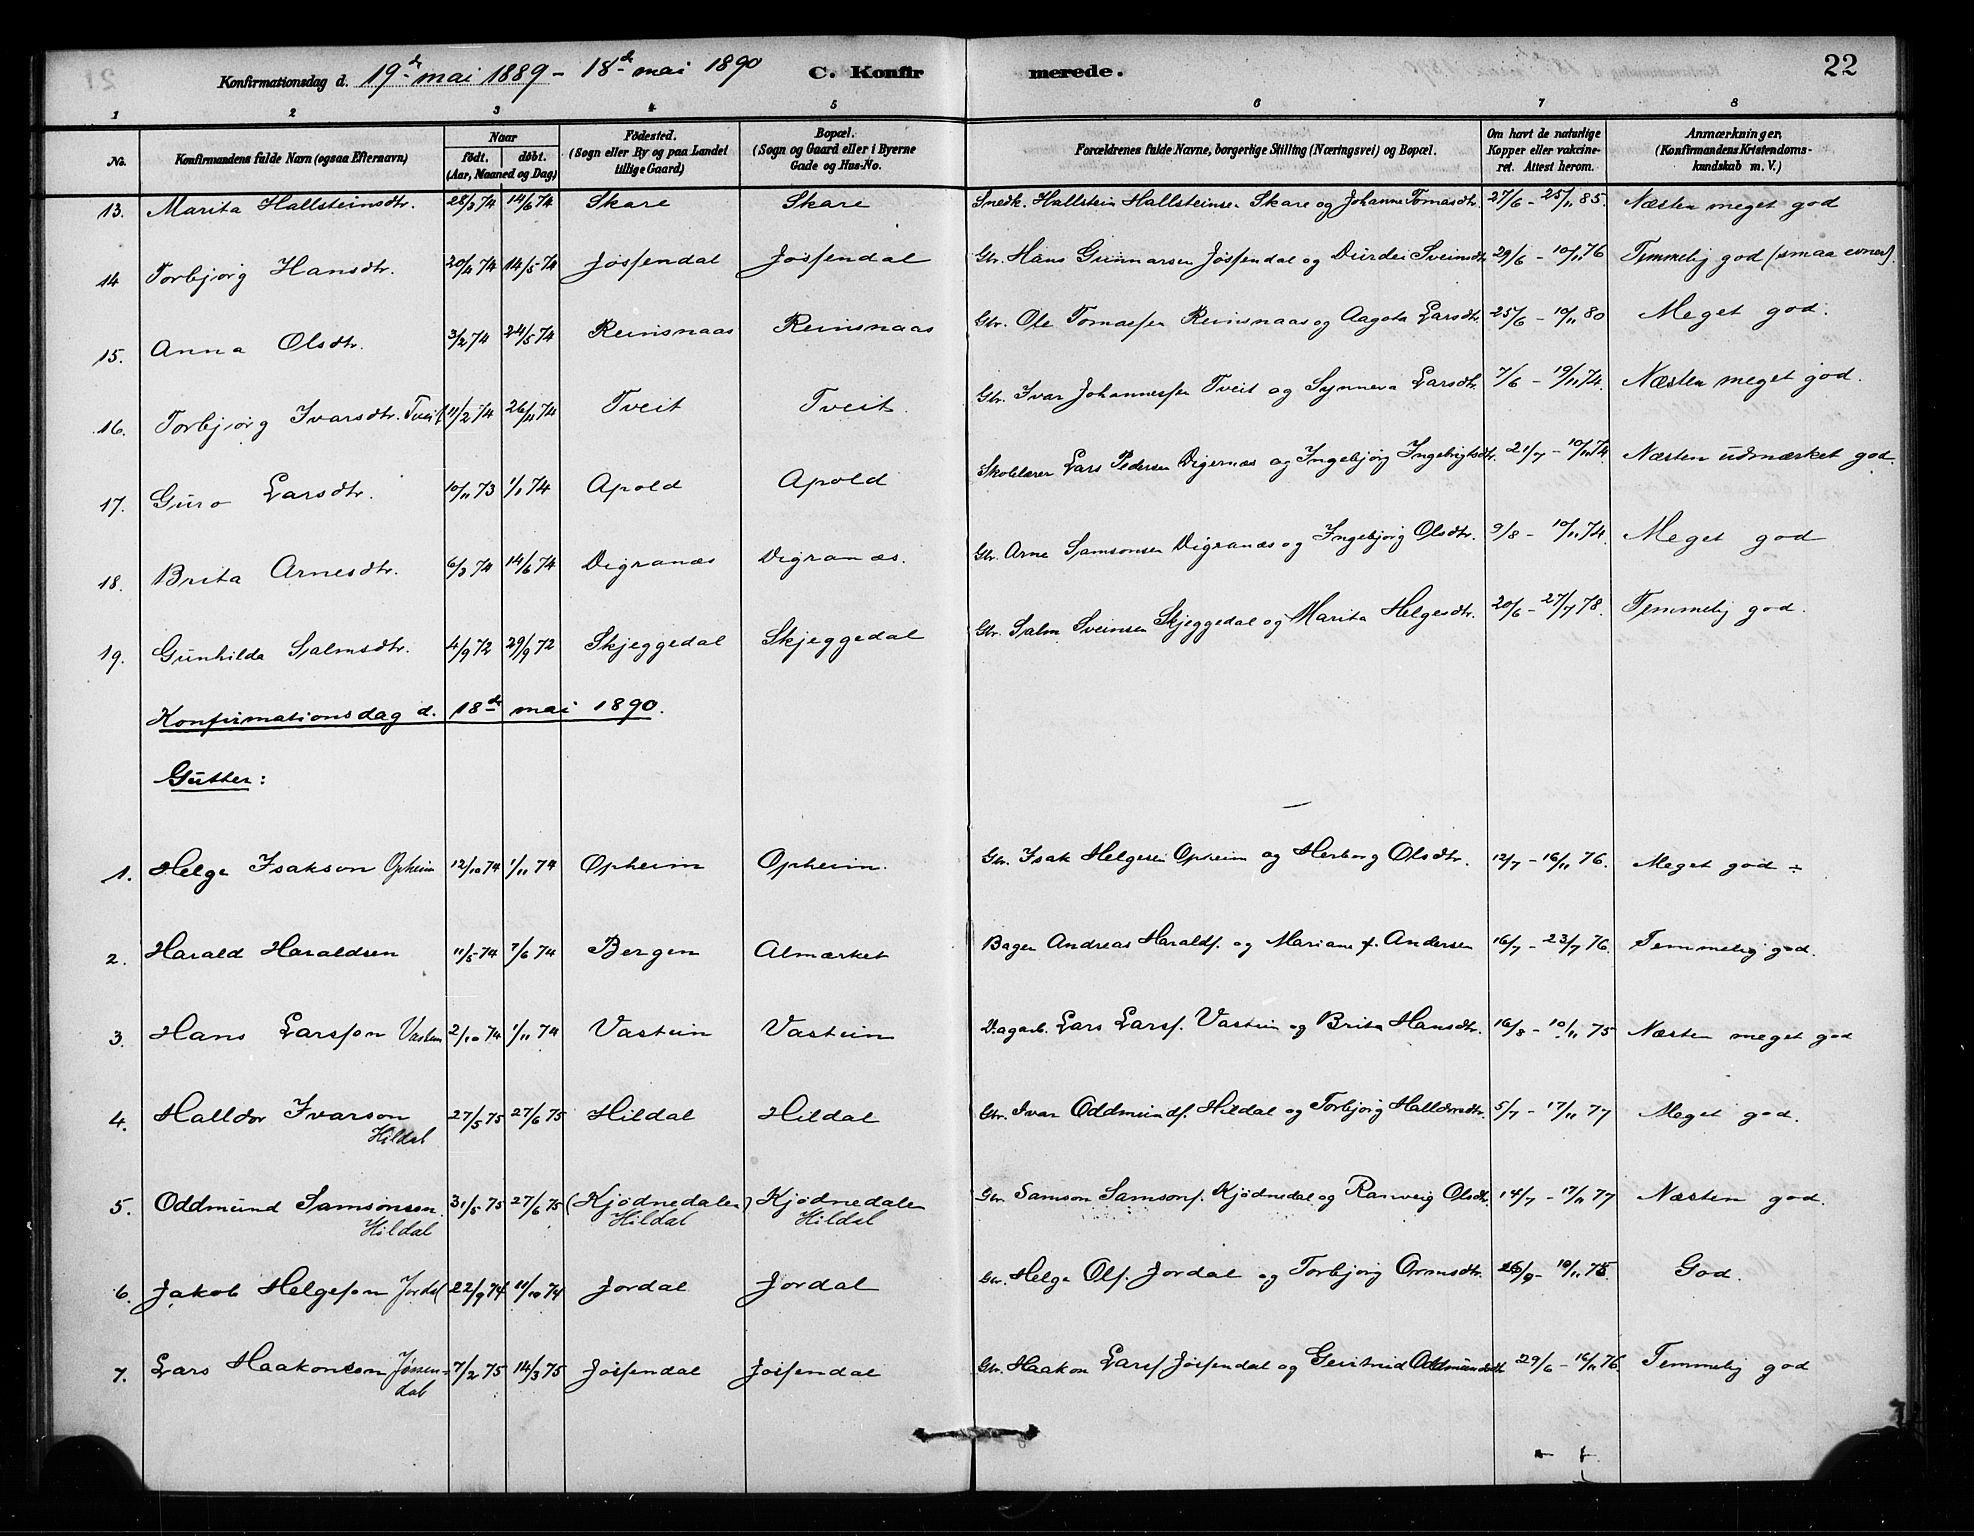 Konfirmationsdag d. 19de mai 1889 - 18de mai 1890 C. Konfirmerede. 22
1 2 3 4 5 6 7 8
No. Konfirmandens fulde Navn (ogsaa Efternavn) Naar født. døbt. (Aar, Maaned og Dag) Fødested. (Sogn eller By og paa Landet tillige Gaard) Bopæl. (Sogn og Gaard eller i Byerne Gade og Hus-No. Forældrenes fulde Navne, borgerlige Stilling (Næringsvei) og Bopæl. Om havt de naturlige Kopper eller vakcineret. Attest herom. Anmærkninger, (Konfirmandens Kristendomskundskab m. V.)
13. Marita Hallsteinsdtr. 28/3 74 14/6 74 Skare Skare Snedk. Hallstein Hallsteinsen Skare og Johanne Tomasdtr. 27/6 - 25/11 85. Næsten meget god
14 Torbjørg Hansdtr. 20/4 74 14/5 74 Jøsfendal Jøsfendal Gbr. Hans Gunnarsen Jøsfendal og Durdei Sveinsdtr 29/6 - 10/11 76 Temmelig god (smaa evner).
15. Anna Olsdtr. 3/2 74 24/5 74 Reinsnaas Reinsnaas Gbr. Ole Tomassen Reinsnaas og Aagota Larsdtr. 25/6 - 10/11 80 Meget god.
16. Torbjørg Ivarsdtr. Tveit 11/2 74 26/4 74 Tveit Tveit. Gbr. Ivar Johannessen Tveit og Synneva Larsdtr. 7/6 - 19/11 74. Næsten meget god.
17. Guro Larsdtr. 10/11 73 1/1 74 Apold Apold Skolelærer Lars Pedersen Digernes og Ingebjørg Ingebrigtsdtr. 21/7 - 10/11 74. Næsten udmærket god.
18. Brita Arnesdtr. 6/3 74 14/6 74 Digranæs Digranæs. Gbr. Arne Samsonsen Digranæs og Ingebjørg Olsdtr. 9/8 - 10/11 74. Meget god
19. Gunhilda Salmsdtr. 4/9 72 29/9 72 Skjeggedal Skjeggedal Gbr. Salm Sveinsen Skjeggedal og Marita Helgesdtr. 20/6 - 27/7 78. Temmelig god.
Konfirmationsdag d. 18de mai 1890.
Gutter:
1. Helge Isakson Opheim 12/10 74 1/11 74 Opheim Opheim. Gbr. Isak Helgesen Opheim og Herborg Olsdtr. 12/7 - 16/11 76. Meget god ÷
2. Harald Haraldsen 11/5 74 7/6 74 Bergen Almærket Bager Andreas Haralds. og Mariane f. Andersen 16/7 - 23/7 76. Temmelig god.
3. Hans Larsson Vastun 2/10 74 1/11 74 Vastein Vastein Dagarb. Lars Larss. Vastein og Brita Hansdtr. 16/8 - 10/11 75 Næsten meget god
4. Halldor Ivarson 27/5 75 27/6 75 Hildal Hildal Gbr. Ivar Oddmunds. Hildal og Torbjørg Halldorsdtr. 5/7 - 17/11 77 Meget god.
Hildal
5. Oddmund Samsonsen 31/5 75 27/6 75 (Kjødnedalen) Kjødnedalen Gbr Samson Samsons. Kjødnedal og Ranveig Olsdtr. 14/7 - 17/11 77 Næsten god.
Hildal Hildal Hildal
6. Jakob Helgeson Jordal 22/9 74 11/10 74 Jordal Jordal Gbr. Helge Ols. Jordal og Torbjørg Ormsdtr. 26/9 - 10/11 75 God.
7. Lars Haakonson Jøssendal 7/2 75 14/3 75 Jøsfendal Jøsfendal Gbr. Haakon Larss. Jøsfendal og Geirtrud Oddmundsdtr 29/6 - 16/11 76. Temmelig god